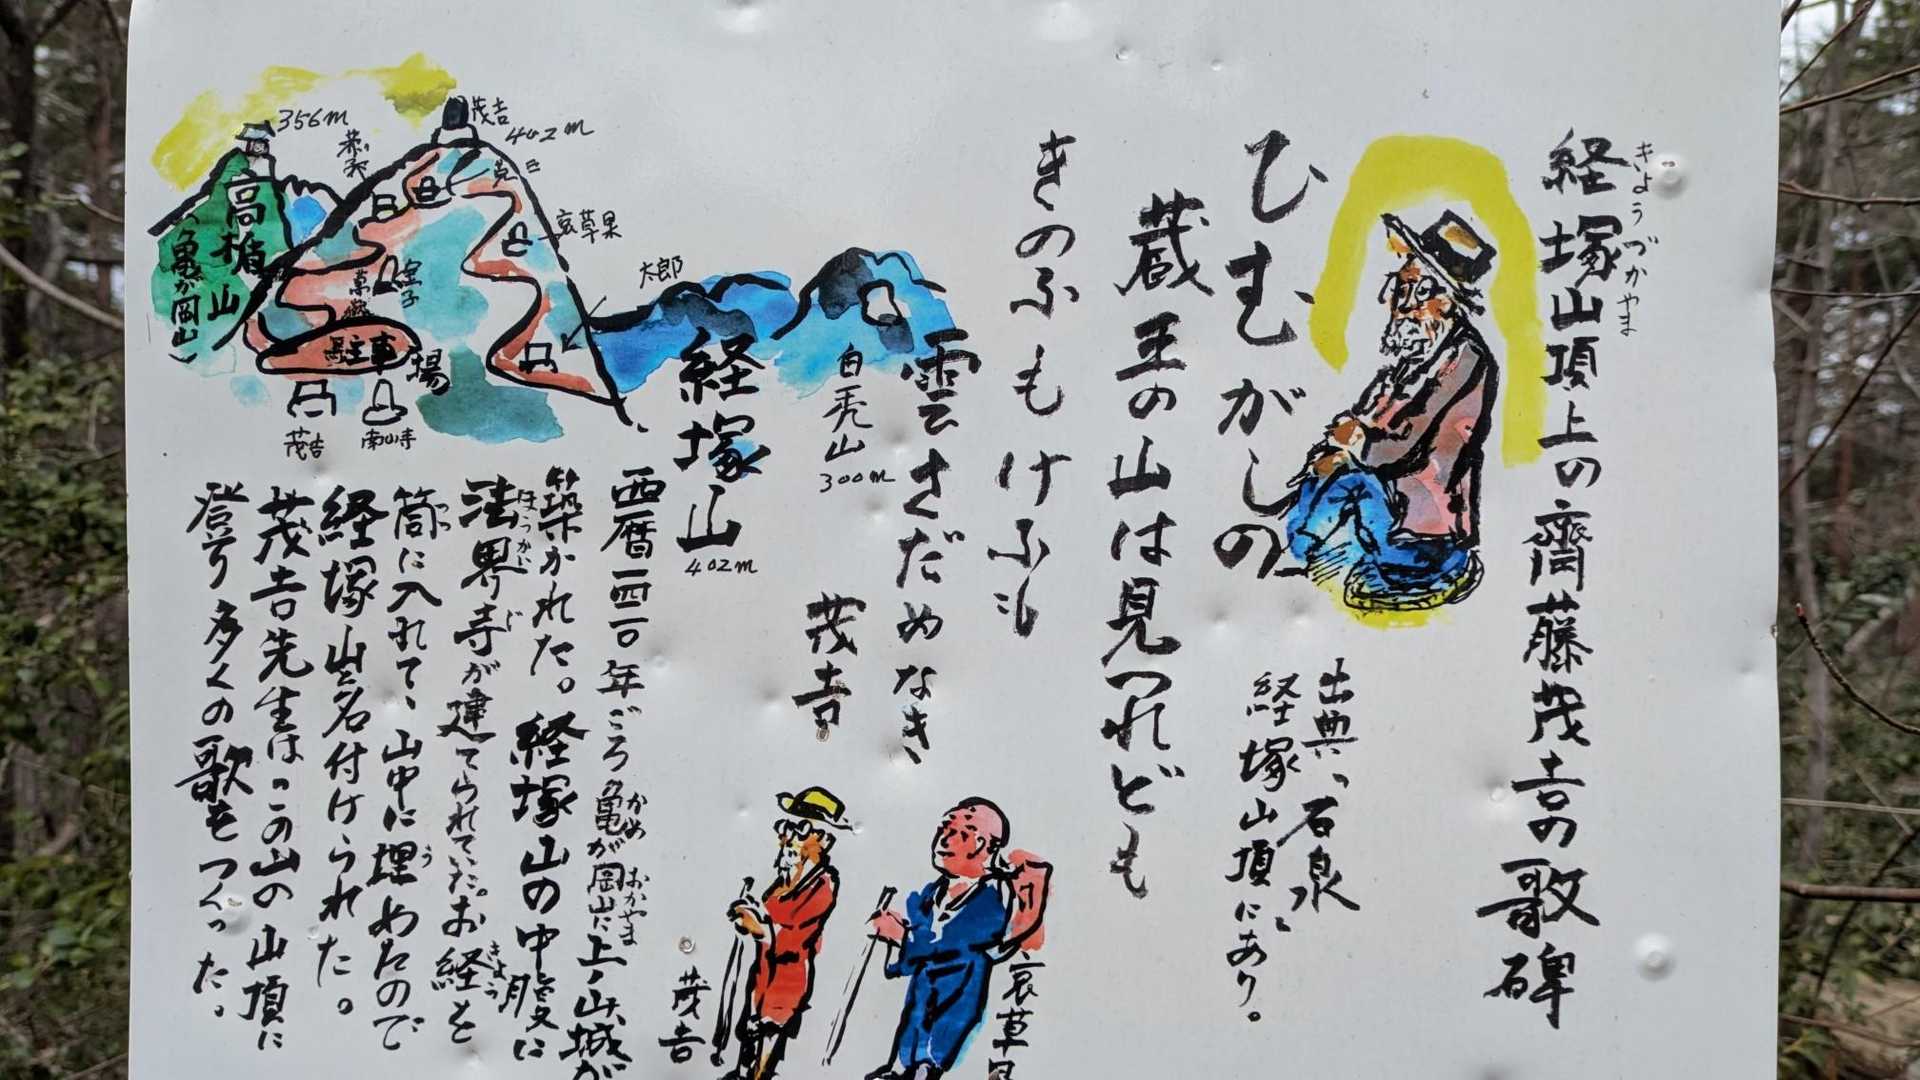 経塚山頂上の齋藤茂吉の歌碑
きょうづかやま
出典「石泉」
経塚山頂にあり。
ひむがしの
蔵王の山は見つれども
きのふもけふも
雲さだめなき
茂吉
白禿山
300m
経塚山
402m
西暦一四二〇年ごろ亀が岡山に上ノ山城が
かめ おかやま
築かれた。経塚山の中腹に
法界寺が建てられていた。お経を
ほうかいじ
きょう
筒に入れて、山中に埋めたので
つつ
う
経塚山と名付けられた。
茂吉先生はこの山の山頂に
登り多くの歌をつくった。
356m
茂吉
402m
哀草果
太郎
高楯山
(亀が岡山)
駐車場
茂吉
南山寺
茂吉
哀草